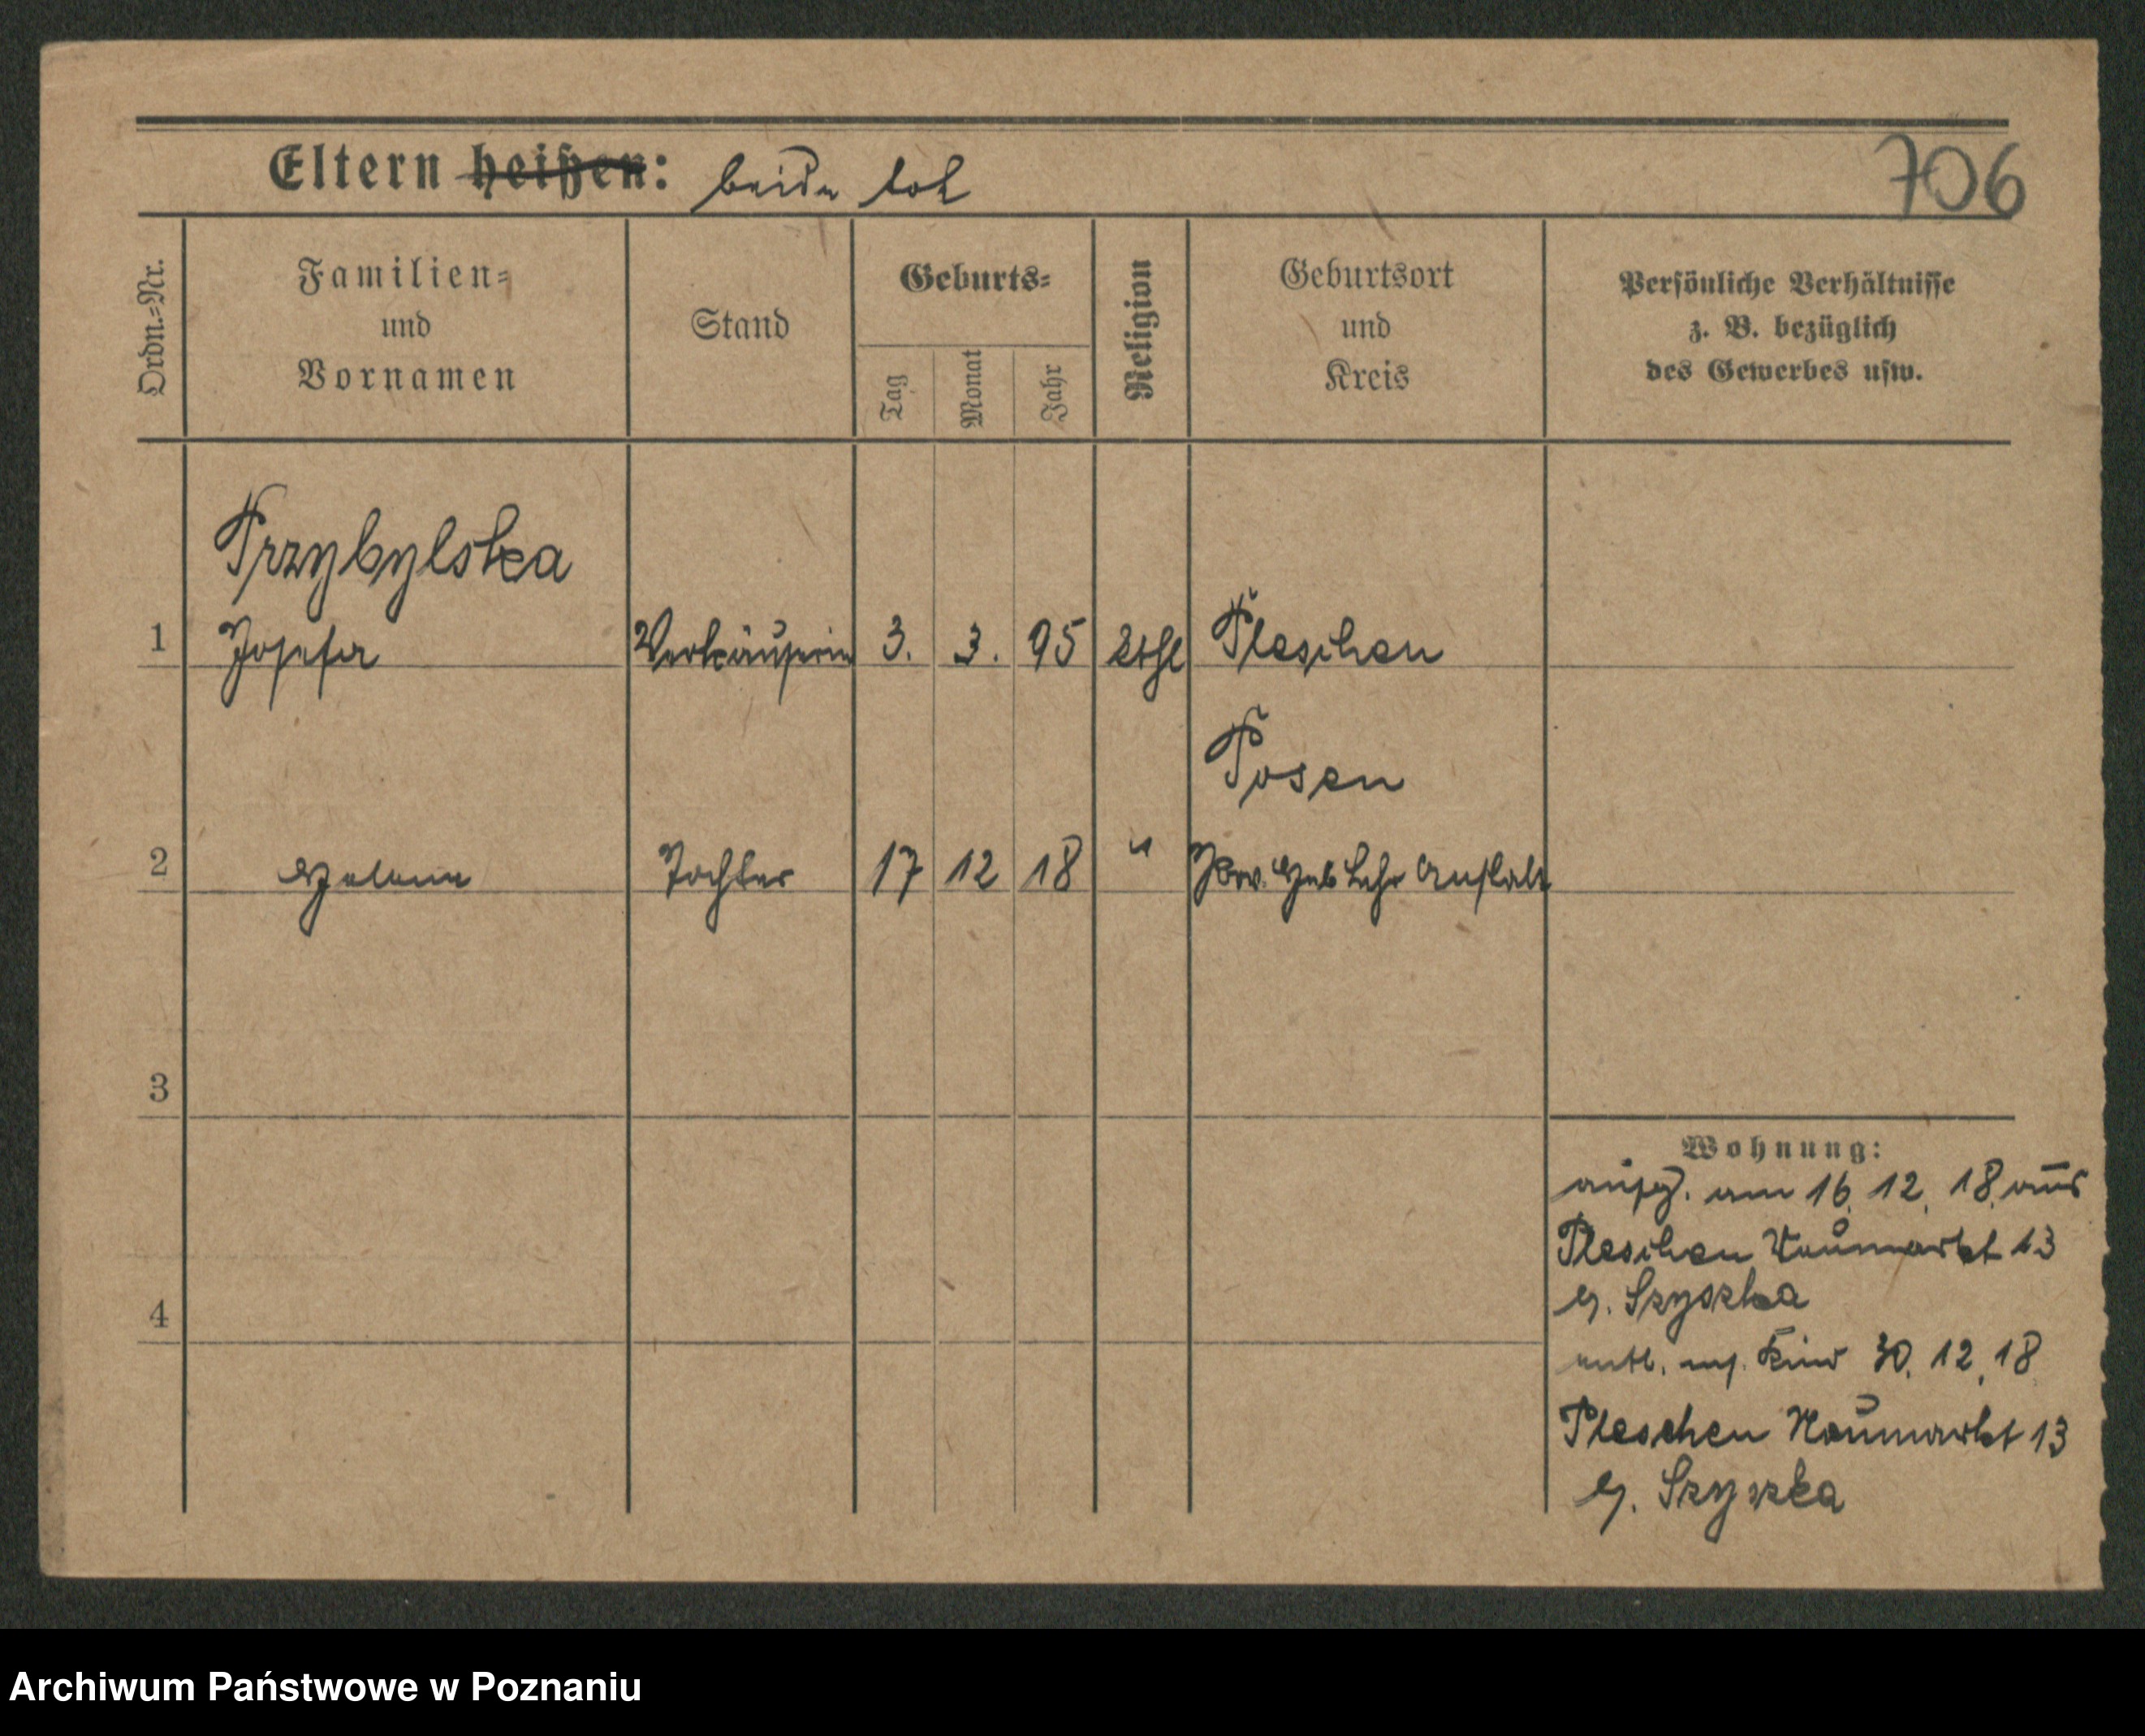 Eltern heißen: beide tot
706
Ordn.=Nr.
Familien=
und
Vornamen
Stand
Geburts=
Tag
Monat
Jahr
Religion
Geburtsort
und
Kreis
Persönliche Verhältnisse
z. B. bezüglich
des Gewerbes usw.
Przybylska
1 Josefa Verkäuferin 3. 3. 95 kthl Pleschen
Posen
2 Helene Tochter 17 12 18 " Prov. Heb Lehr Anstalt
3
Wohnung:
aufg. am 16. 12. 18. aus
Pleschen Neumarkt 13
b. Szyszka
4
entl. m. Kind 30. 12. 18
Pleschen Neumarkt 13
b. Szyszka
Archiwum Państwowe w Poznaniu